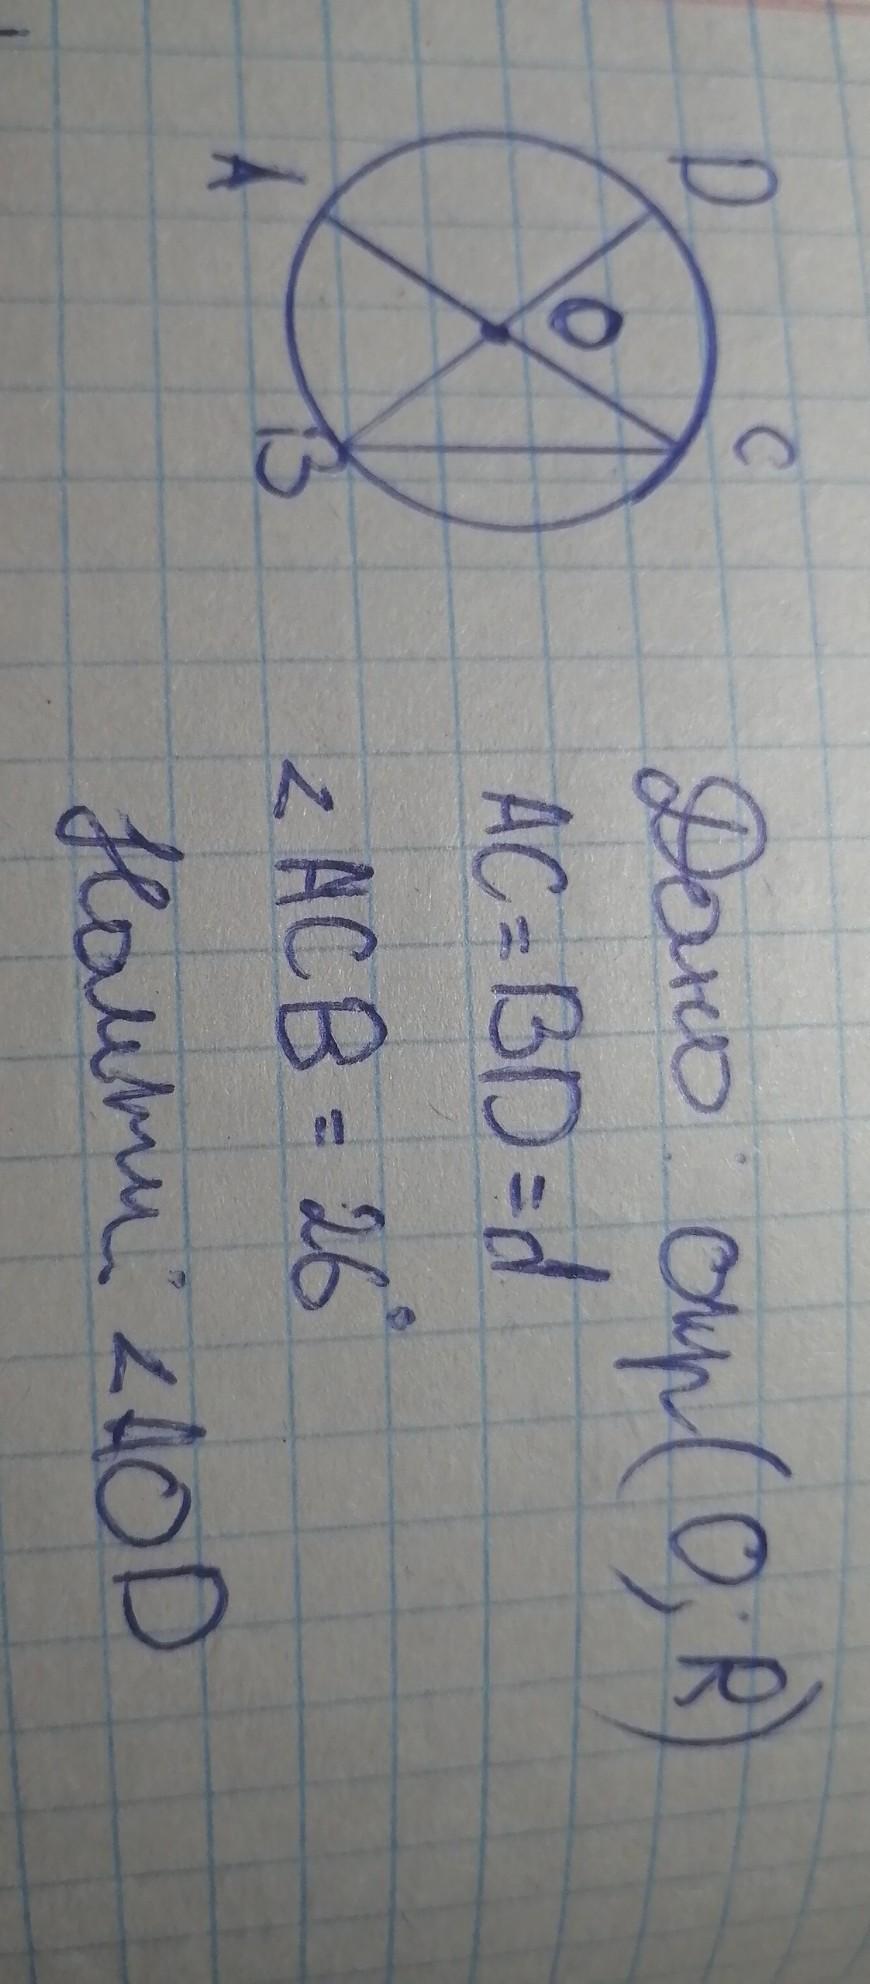 D
C
O
A
B
Дано: Окр(O; R)
AC = BD = d
<ACB = 26°
Найти: <AOD